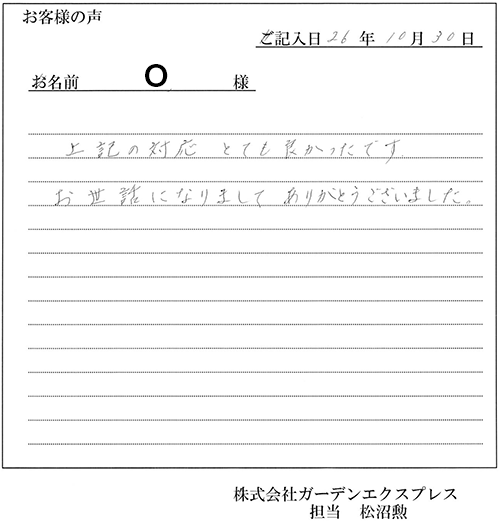 お客様の声
ご記入日 26 年 10 月 30 日
お名前 O 様
上記の対応 とても良かったです
お世話になりまして ありがとうございました。
株式会社ガーデンエクスプレス
担当 松沼勲